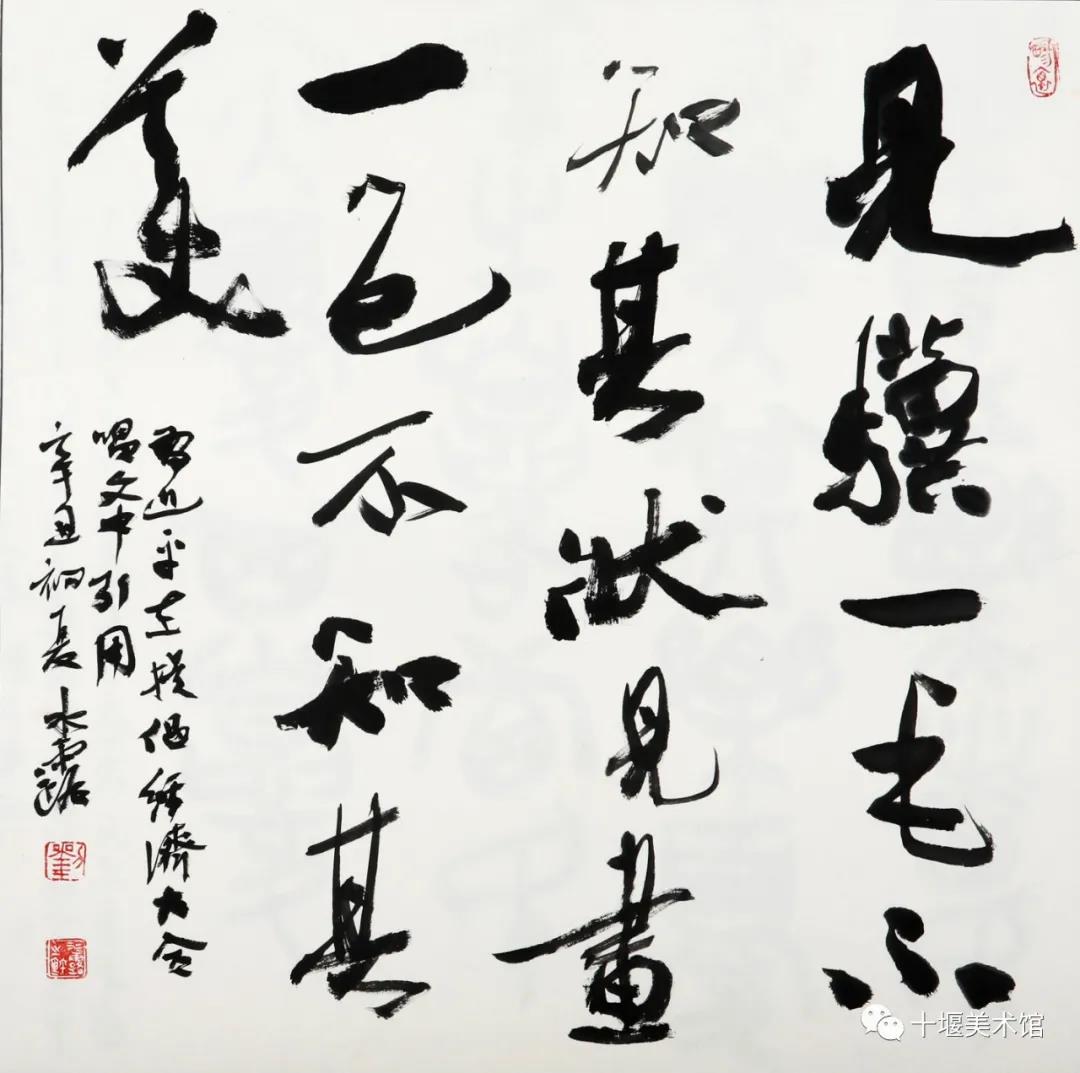 見驥一毛不
知其狀見畫
一色不知其
美
習近平在提倡經濟大合
唱文中引用
辛丑初夏 水露
十堰美术馆